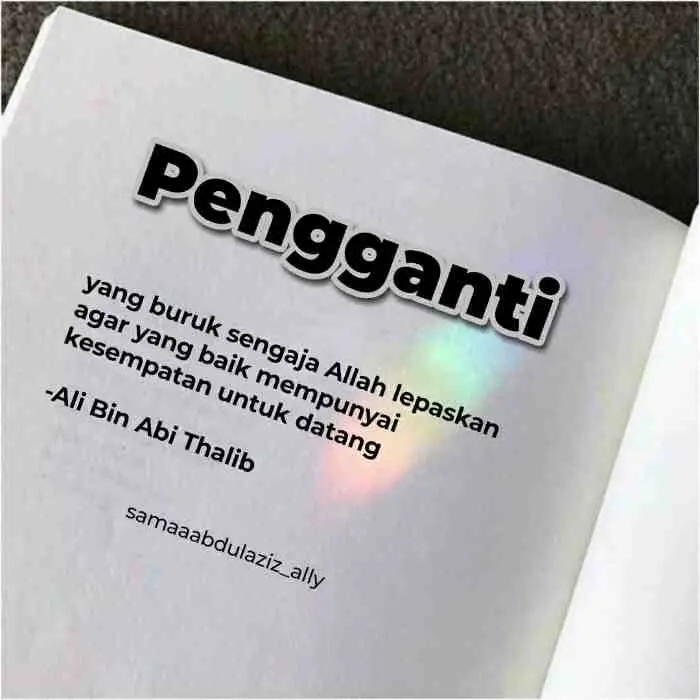 Pengganti
yang buruk sengaja Allah lepaskan
agar yang baik mempunyai
kesempatan untuk datang
-Ali Bin Abi Thalib
samaaabdulaziz_ally